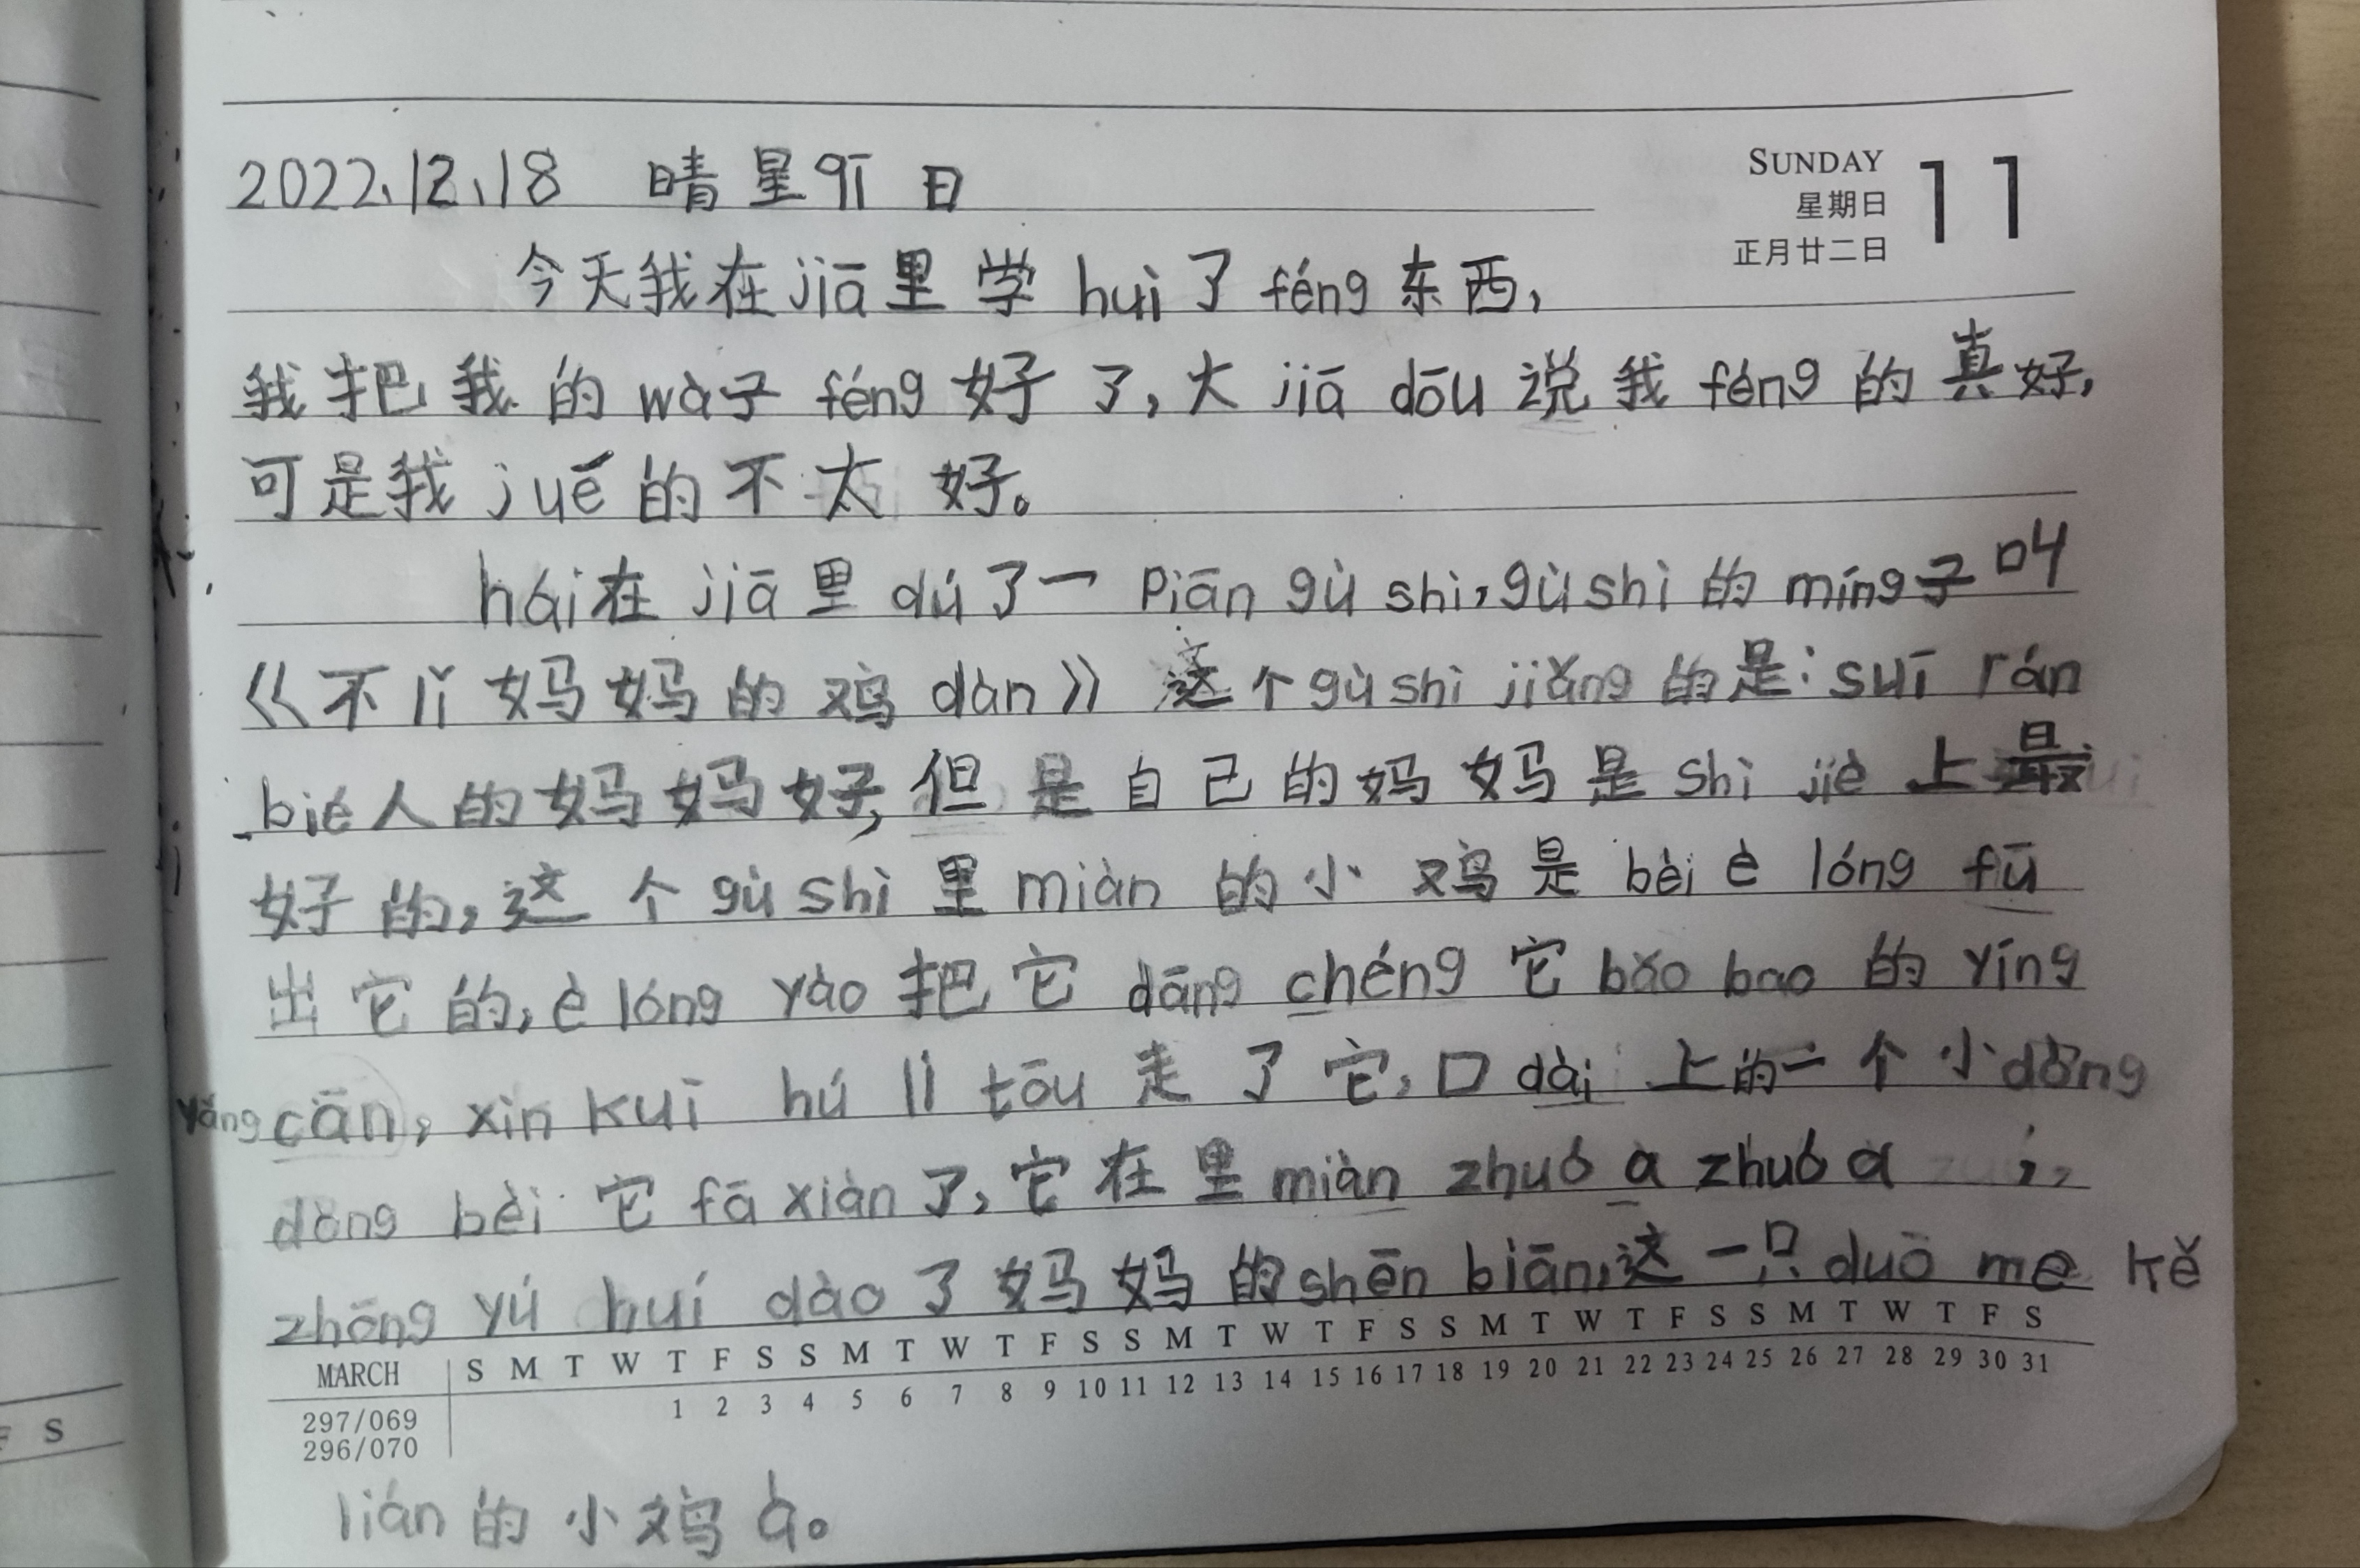 2022、12、18 晴 星qī 日
SUNDAY
星期日
正月廿二日
11
今天我在jiā里 学 huì 了 féng 东西,
我把我的 wà子 féng 好了,大 jiā dōu 说我 féng 的真好,
可是我 jué 的不太好。
hái在 jiā 里 dú 了一 Piān gù shi,gùshì 的 míng子叫
《不lǐ 妈妈的鸡 dàn》 这个gùshì jiǎng 的是:suī rán
bié人的妈妈好,但是自己的妈妈是 shì jiè 上最
好的,这个 gù shì 里 miàn 的小鸡是 bèi è lóng fū
出它的,è lóng yào 把它 dāng chéng 它 bǎo bao 的 yíng
yǎng cān, xìn kuī hú lí tōu 走了它,口 dài 上的一个小dòng
dòng bèi 它 fā xiàn 了,它在里 miàn zhuó a zhuó a ,
zhōng yú huí dào 了妈妈的shēn biān,这一只 duō me kě
MARCH S M T W T F S S M T W T F S S M T W T F S S M T W T F S S M T W T F S
1 2 3 4 5 6 7 8 9 10 11 12 13 14 15 16 17 18 19 20 21 22 23 24 25 26 27 28 29 30 31
297/069
296/070
F S
lián 的小鸡 à。